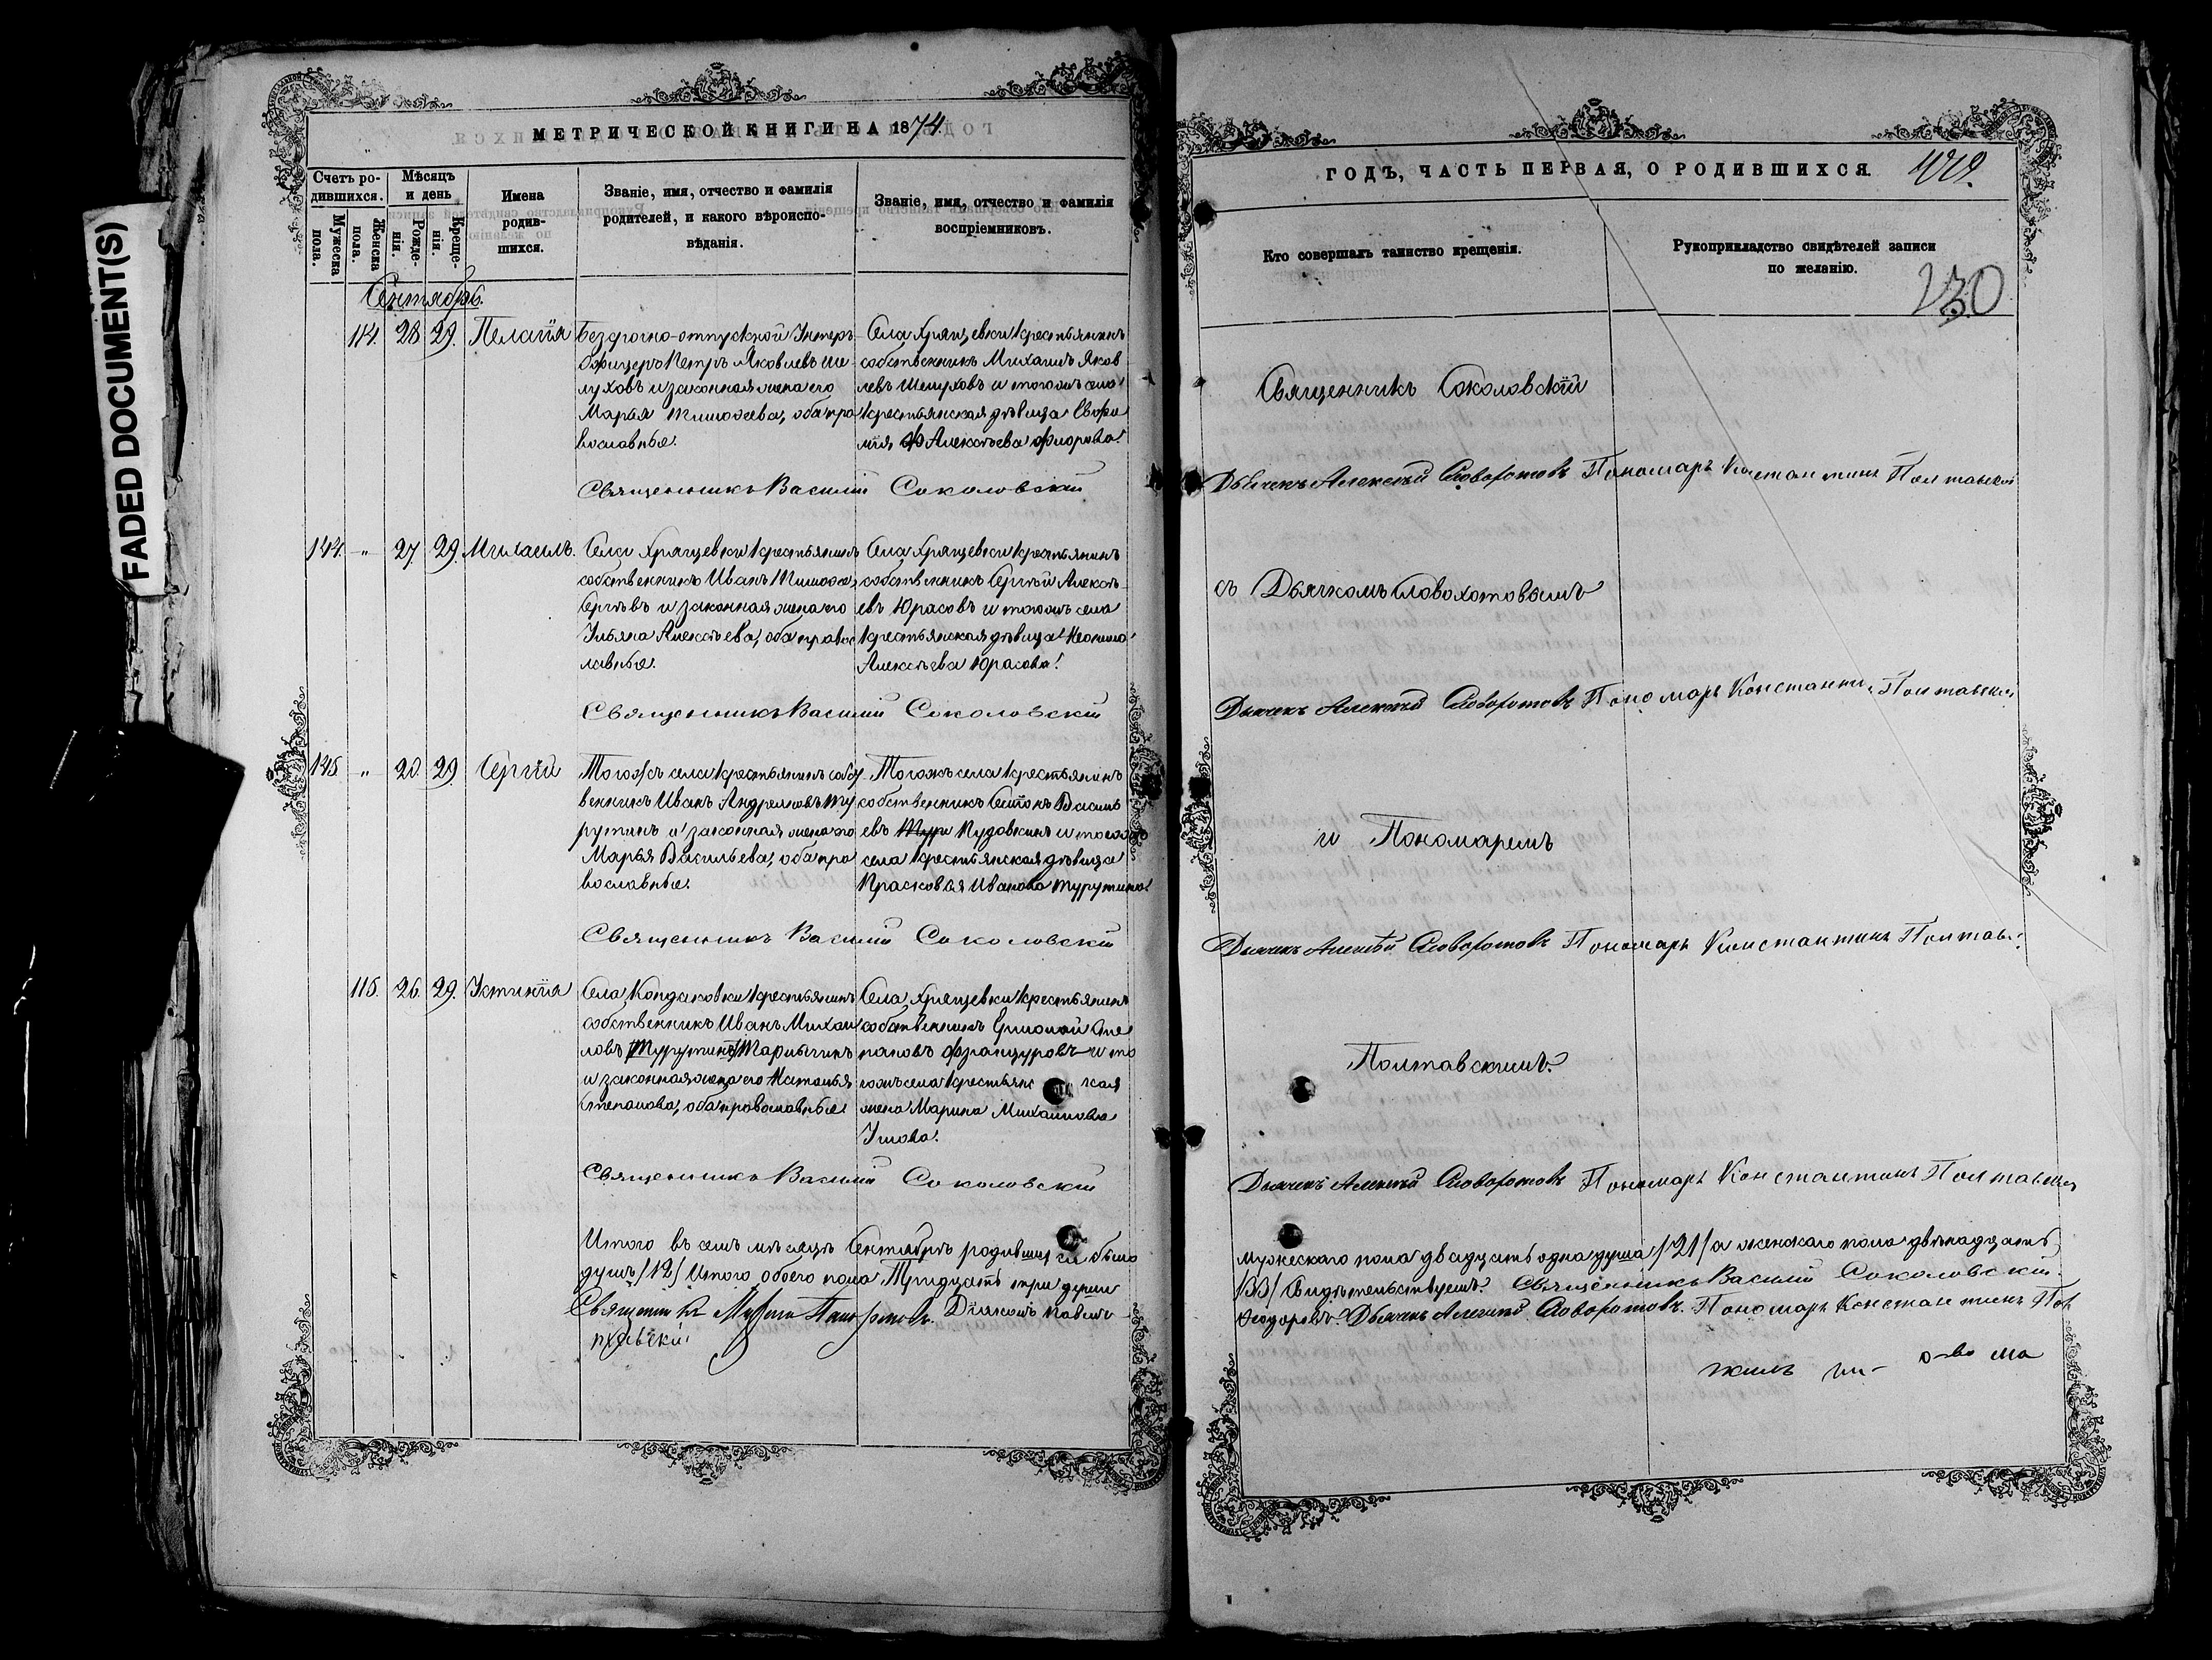 FADED DOCUMENT(S)
МЕТРИЧЕСКОЙ КНИГИ НА 1874.
Счетъ родившихся.
Мужеска пола.
Женска пола.
Мѣсяцъ и день
Рожденія.
Крещенія.
Имена родившихся.
Званіе, имя, отчество и фамилія
родителей, и какого вѣроиспо-
вѣданія.
Званіе, имя, отчество и фамилія
воспріемниковъ.
Сентябрь.
114. 28 29. Пелагія
Безсрочно-отпускной Унтеръ
Офицеръ Петръ Яковлевъ Ше
луховъ и законная жена его
Марья Тимофеева, оба пра
вославные.
Села Хрящевки крестьянинъ
собственникъ Михаилъ Яков
левъ Шелуховъ и тогожъ села
крестьянская дѣвица Евфи
мія Алексѣева Фролова.
Священникъ Василій Соколовскій
144. " 27. 29. Михаилъ.
Села Хрящевки крестьянинъ
собственникъ Иванъ Тимофе
Сергѣевъ и законная жена его
Ульяна Алексѣева, оба правос
лавные.
Села Хрящевки крестьянинъ
собственникъ Сергѣй Алексѣ-
евъ Юрасовъ и тогожъ села
крестьянская дѣвица
Алексѣева Юрасова.
Священникъ Василій Соколовскій
145 " 20. 29. Сергій
Тогожъ села крестьянинъ собст
венникъ Иванъ Андреяновъ Ту
рутинъ и законная жена его
Марья Васильева, оба пра
вославные.
Тогожъ села крестьянинъ
собственникъ Василь
евъ Пудовкинъ и тогожъ
села крестьянская дѣвица
Прасковья Иванова Турутина.
Священникъ Василій Соколовскій
115. 26. 29. Устинія
Села Кондаковки крестьянинъ
собственникъ Иванъ Михаи
ловъ
и законная жена его Наталья
Степанова, оба православные
Села Хрящевки крестьянинъ
собственникъ Ермолай Сте
пановъ Французовъ и то
гожъ села крестьянская
жена Марина Михайлова
Священникъ Василій Соколовскій
Итого въ семъ мѣсяцѣ Сентябрѣ родившихся было
душъ /12/ Итого обоего пола Тридцать три души
Священникъ Діаконъ Павелъ
ГОДЪ, ЧАСТЬ ПЕРВАЯ, О РОДИВШИХСЯ.
230
Кто совершалъ таинство крещенія.
Рукоприкладство свидѣтелей записи
по желанію.
Священникъ Соколовскій
Дьячекъ Алексѣй Словохотовъ Пономарь Константинъ Полтавскій
съ Дьячкомъ Словохотовымъ
Дьячекъ Алексѣй Словохотовъ Пономарь Константинъ Полтавскій
и Пономаремъ
Дьячекъ Алексѣй Словохотовъ Пономарь Константинъ Полтавс
Полтавскимъ.
Дьячекъ Алексѣй Словохотовъ Пономарь Константинъ Полтавскій
мужескаго пола двадцать одна душа /21/ а женскаго пола двѣнадцать
/33/ Свидѣтельствуемъ: Священникъ Василій Соколовскій.
Феодоровъ. Дьячекъ Алексѣй Словохотовъ. Пономарь Константинъ Пол